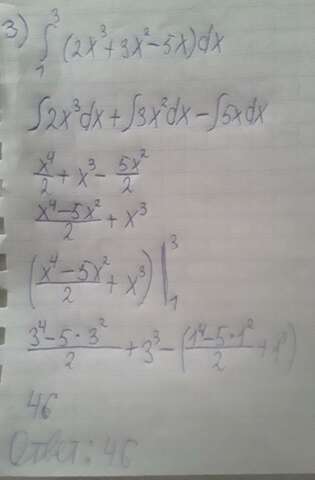 3) ∫₁³ (2x³+3x²-5x)dx
∫2x³dx+∫3x²dx-∫5xdx
x⁴/2 + x³ - 5x²/2
(x⁴-5x²)/2 + x³
((x⁴-5x²)/2 + x³) |₁³
(3⁴-5·3²)/2 + 3³ - ((1⁴-5·1²)/2 + 1³)
46
Ответ: 46